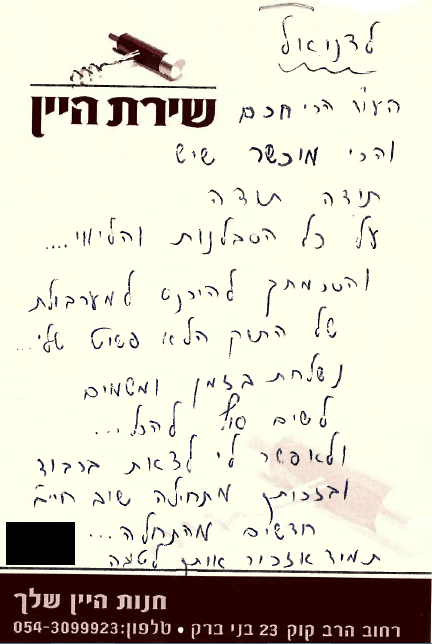 לדניאל
שירת היין
העו״ד הכי חכם
והכי מוכשר שיש
תודה תודה
על כל הסבלנות והליווי....
והסכמתך להיכנס למערבולת
של התיק הלא פשוט שלי...
נשלחת בזמן ומשמים
לשים סוף להכל...
ולאפשר לי לצאת בכבוד
ובזכותך מתחילה שוב חיים
חדשים מהתחלה...
תמיד אזכור אותך לטובה
חנות היין שלך
רחוב הרב קוק 23 בני ברק • טלפון: 054-3099923